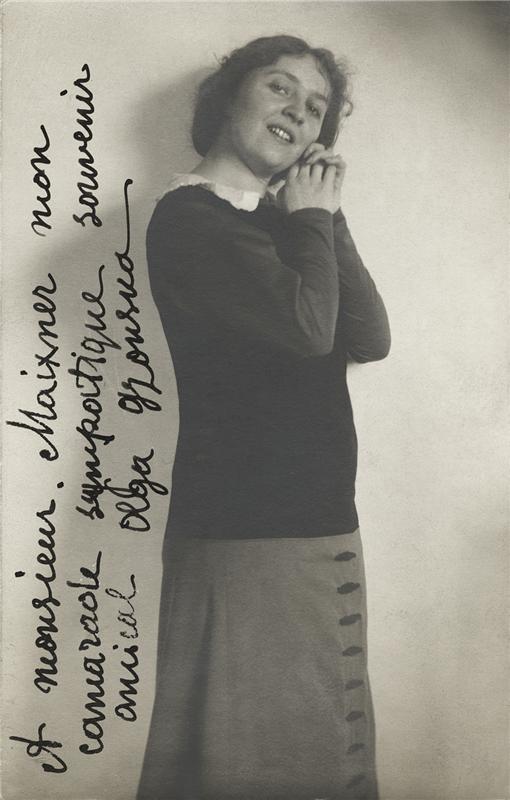 A monsieur. Maixner mon
camarade sympatique souvenir
amical Olga Gzowska